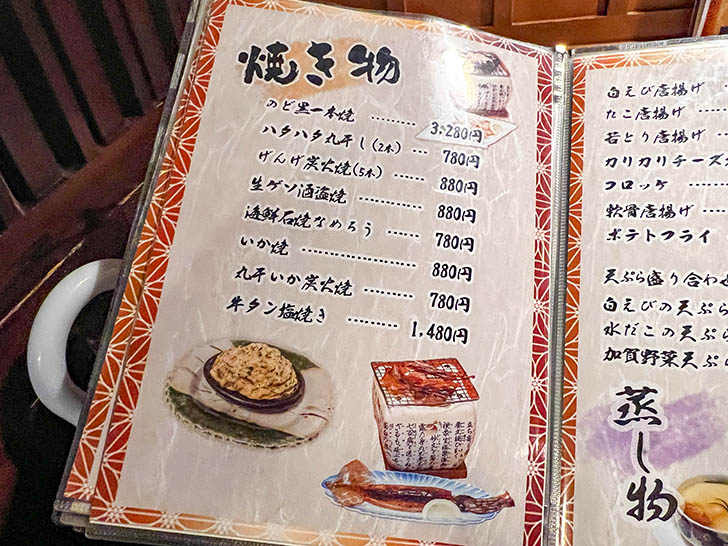 焼き物
のど黒一本焼 ……… 3,280円
ハタハタ丸干し(2本) … 780円
げんげ炭火焼(5本) …… 880円
生ゲソ酒盗焼 ………… 880円
海鮮石焼なめろう …… 780円
いか焼 ………………… 880円
丸干いか炭火焼 ……… 780円
牛タン塩焼き ………… 1,480円
白えび唐揚げ
たこ唐揚げ
若とり唐揚げ
カリカリチーズ
コロッケ
軟骨唐揚げ
ポテトフライ
天ぷら盛り合わ
白えびの天ぷら
水だこの天ぷら
加賀野菜天ぷ
蒸し物